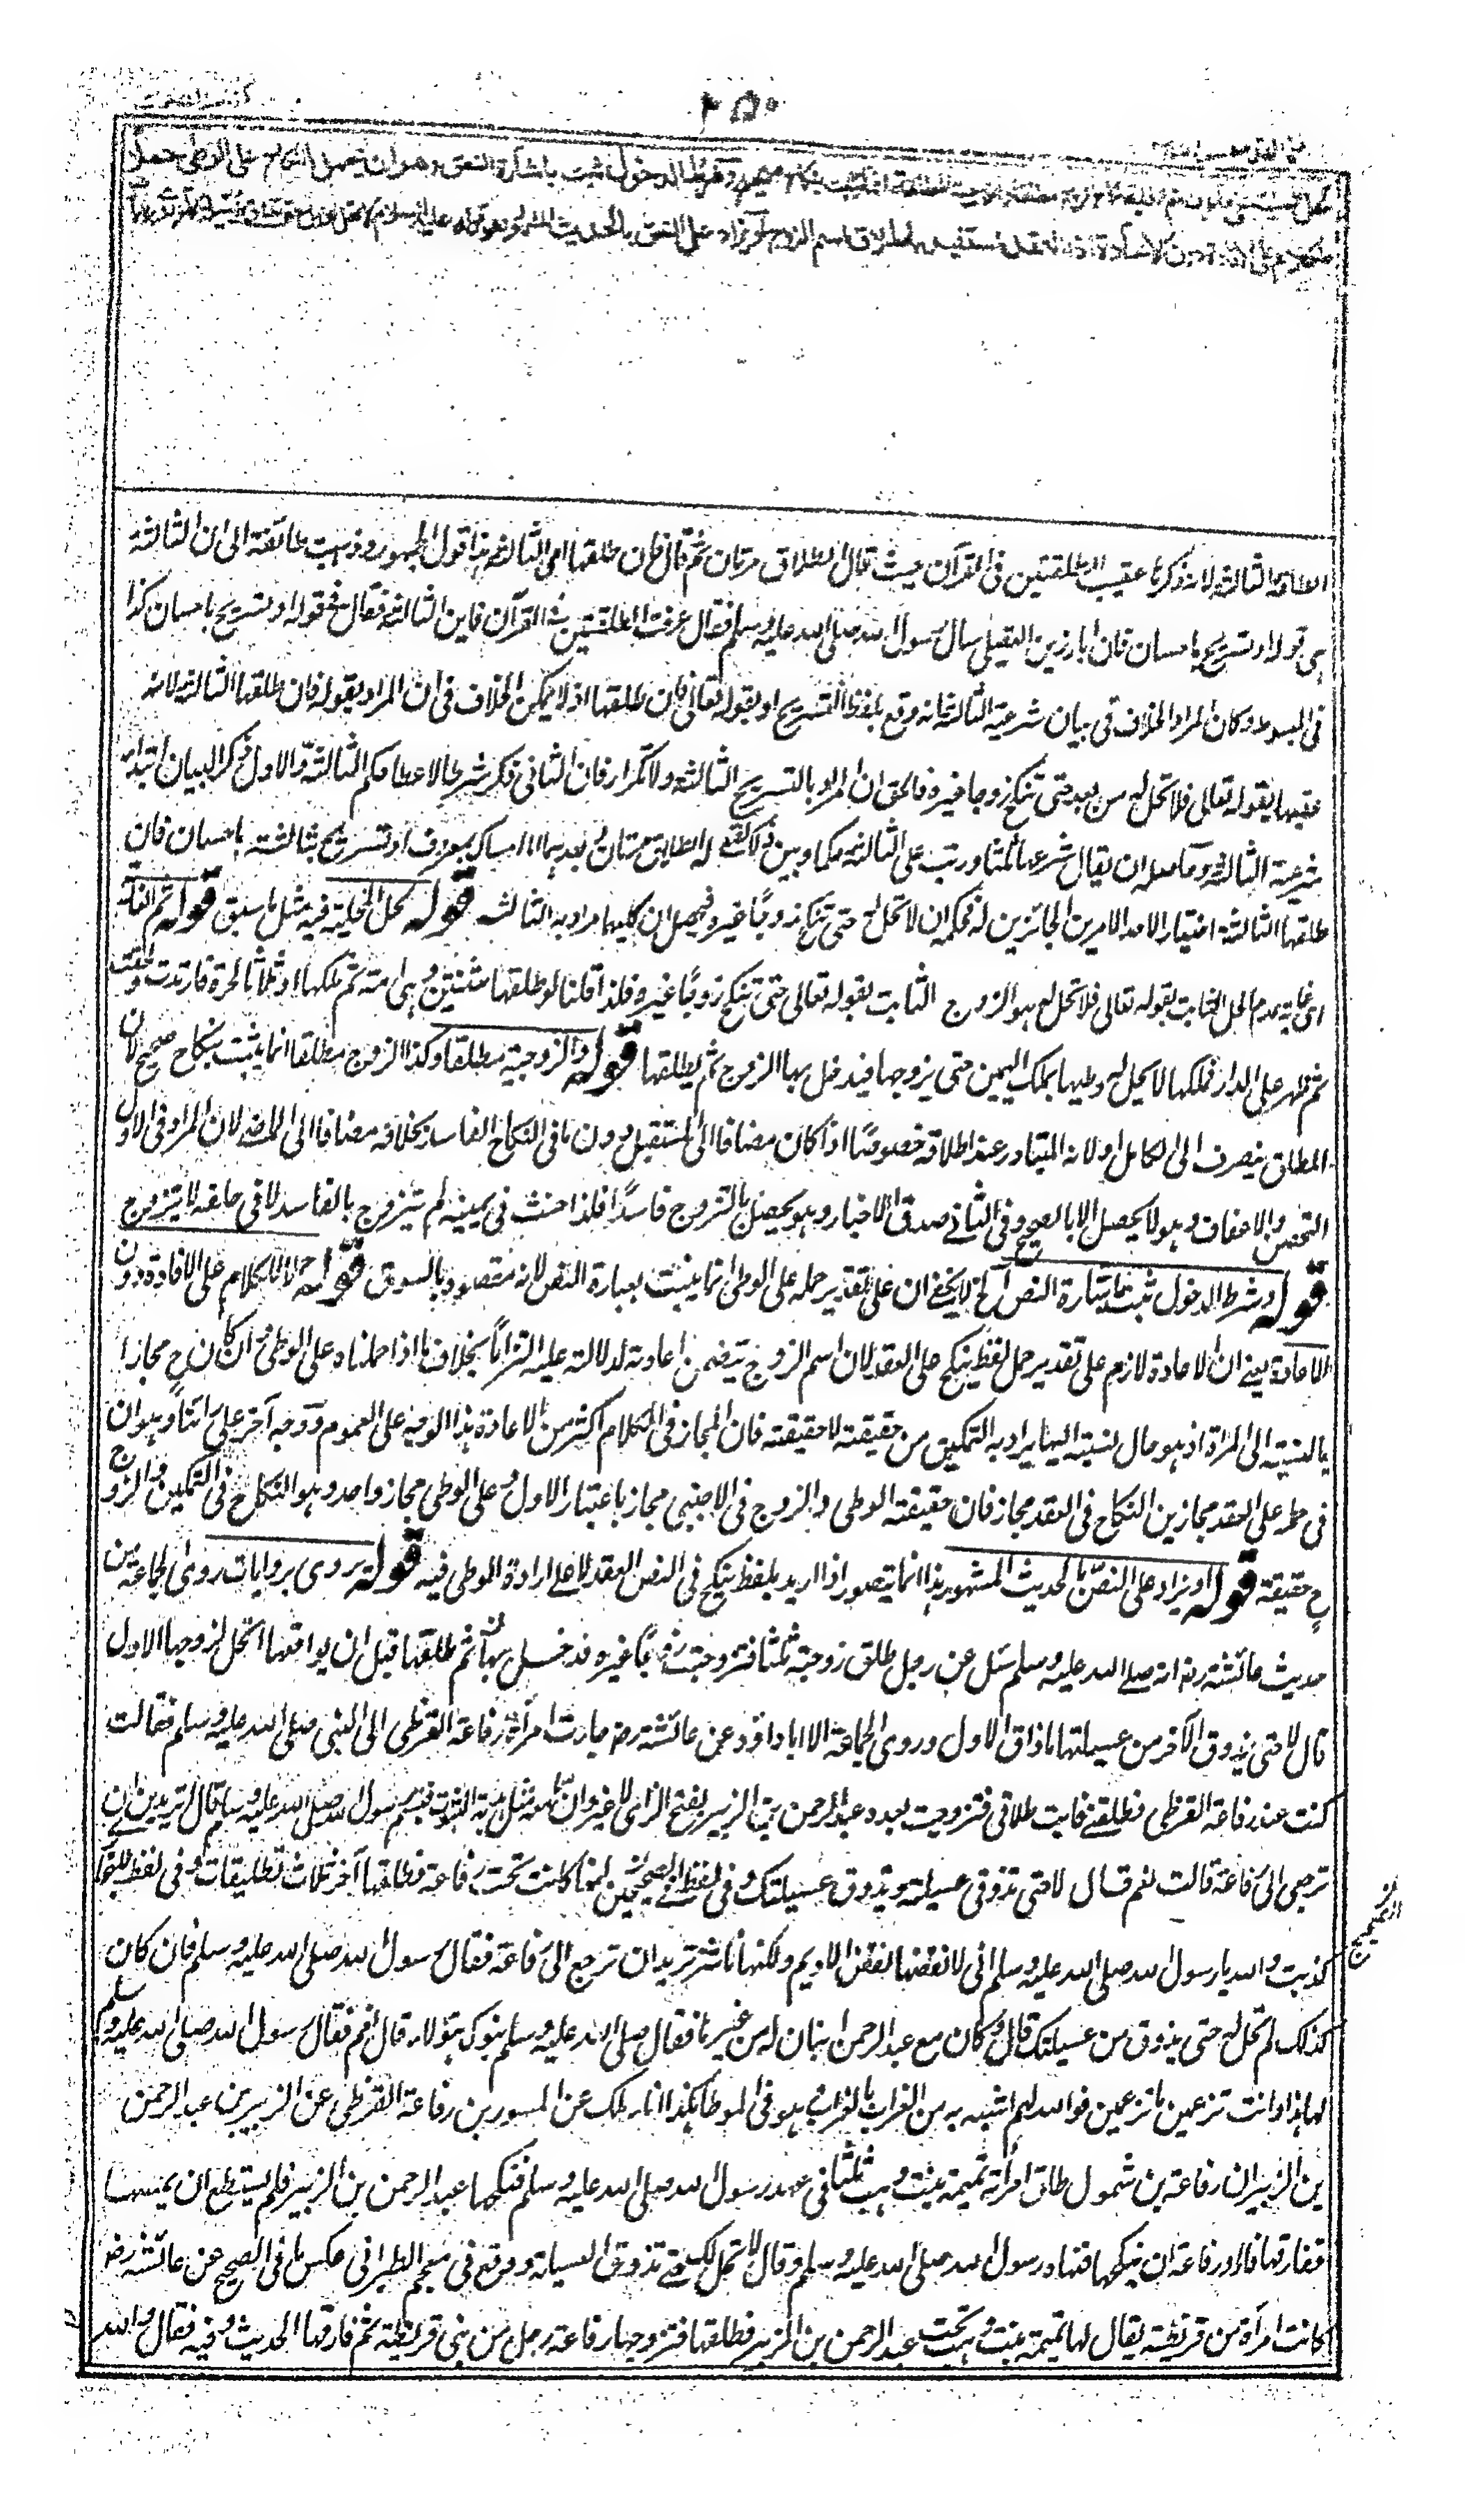 ٢٥٠
لحل المحلية فان نكاح الزوجية المطلقة انما تثبت بنكاح صحيح وشرط الدخول ثبت باشارة النص وهو ان يحمل النكاح على الوطى حملا
للكلام على الافادة دون الاعادة اذ العقد استفيد باطلاق اسم الزوج او يزاد على النص بالحديث المشهور وهو قوله عليه السلام لا تحل للاول حتى تذوق
الطلقة الثالثة لانه ذكرها عقيب الطلقتين فى القرآن حيث قال الطلاق مرتان ثم قال فان طلقها اى الثالثة هذا قول الجمهور وذهبت طائفة الى ان الثالثة
هى قوله او تسريح باحسان فان ابا رزين العقيلى سال رسول الله صلى الله عليه وسلم فقال عرفت الطلقتين فى القرآن فاين الثالثة فقال فى قوله او تسريح باحسان كذا
فى المبسوط وكان المراد الخلاف فى بيان شرعية الثالثة انه وقع بلفظ التسريح او بقوله تعالى فان طلقها اذ لا يمكن الخلاف فى ان المراد بقوله فان طلقها الثالثة لانه
عقبها بقوله تعالى فلا تحل له من بعد حتى تنكح زوجا غيره فالحق ان المراد بالتسريح الثالثة ولا تكرار فان الثانى ذكر شرطا لاعطاء حكم الثالثة والاول ذكر لبيان ابتداء
شرعية الثالثة وحاصله ان يقال شرعها ثلثا ورتب على الثالثة حكما وبين ذلك بقوله الطلاق مرتان وبعدهما اما امساك بمعروف او تسريح بثالثة باحسان فان
طلقها الثالثة اختيارا لاحد الامرين الجائزين له فحكمه ان لا تحل له حتى تنكح زوجًا غيره فيحصل ان كليهما مراد به الثالثة قوله لحل المحلية فيه مثل ما سبق قوله ثم الغاية
اى غاية عدم الحل الثابت بقوله تعالى فلا تحل له هو الزوج الثابت بقوله تعالى حتى تنكح زوجًا غيره فلذا قلنا لو طلقها ثنتين وهى امته ثم ملكها او ثلاثا لحرة فارتدت ولحقت
ثم ظهر على الدار فملكها لا يحل له وطيها بملك اليمين حتى يزوجها فيدخل بها الزوج ثم يطلقها قوله والزوجية مطلقا وكذا الزوج مطلقا انما يثبت بنكاح صحيح لان
المطلق ينصرف الى الكامل ولانه المتبادر عند اطلاقه خصوصًا اذا كان مضافا الى المستقبل دون ما فى النكاح الفاسد بخلافه مضافا الى الماضى لان المراد فى الاول
التحصن والاعفاف وهو لا يحصل الا بالصحيح وفى الثانى صدق الاخبار وهو يحصل بالتزوج فاسدًا فلذا حنث فى يمينه لم يتزوج بالفاسد لا فى حلفه لا يتزوج
قوله وشرط الدخول ثبت باشارة النص الخ لا يخفى ان على تقدير حمله على الوطى انما يثبت بعبارة النص لانه مقصود بالسوق قوله حملا للكلام على الافادة دون
الاعادة يعنى ان الاعادة لازم على تقدير حمل لفظ ينكح على العقد لان اسم الزوج يتضمن اعادته لدلالته عليه التزامًا بخلاف ما اذا حملناه على الوطى وان كان ح مجازا
بالنسبة الى المرأة اذ هو حال نسبته اليها يراد به التمكين من حقيقته لا حقيقته فان المجاز فى الكلام اكثر من الاعادة هذا الوجه على العموم ووجه آخر على راينا وهو ان
فى حمله على العقد مجازين النكاح فى العقد مجاز فان حقيقته الوطى والزوج فى الاجنبى مجاز باعتبار الاول وعلى الوطى مجاز واحد وهو النكاح فى التمكين والزوج
ح حقيقة قوله او يزاد على النص بالحديث المشهور هذا انما يتصور اذا اريد بلفظ ينكح فى النص العقد لا على ارادة الوطى فيه قوله يروى بروايات روى الجماعة من
حديث عائشة رض انه صلى الله عليه وسلم سئل عن رجل طلق زوجته ثلثا فتزوجت زوجًا غيره فدخل بها ثم طلقها قبل ان يواقعها اتحل لزوجها الاول
قال لا حتى يذوق الآخر من عسيلتها ما ذاق الاول وروى الجماعة الا ابا داؤد عن عائشة رض جاءت امرأة رفاعة القرظى الى النبى صلى الله عليه وسلم فقالت
كنت عند رفاعة القرظى فطلقنى فابت طلاقى فتزوجت بعده عبد الرحمن بن الزبير بفتح الزاى لا غير وان ما معه مثل هدبة الثوب فتبسم رسول الله صلى الله عليه وسلم قال اتريدين ان
ترجعى الى رفاعة قالت نعم قال لا حتى تذوقى عسيلته ويذوق عسيلتك وفى لفظ فى الصحيحين انها كانت تحت رفاعة فطلقها آخر ثلاث تطليقات وفى لفظ للبخارى
كذبت والله يا رسول الله صلى الله عليه وسلم انى لانفضها نفض الاديم ولكنها ناشز تريد ان ترجع الى رفاعة فقال رسول الله صلى الله عليه وسلم فان كان
كذلك لم تحل له حتى يذوق من عسيلتك قال وكان مع عبد الرحمن ابنان له من غيرها فقال صلى الله عليه وسلم بنوك هؤلاء قال نعم فقال رسول الله صلى الله عليه وسلم
لها هذا وانت تزعمين ما تزعمين فوالله لهم اشبه به من الغراب بالغراب هو فى الموطا هكذا انا مالك عن المسور بن رفاعة القرظى عن الزبير بن عبد الرحمن
بن الزبير ان رفاعة بن شمول طلق امرأته تميمة بنت وهب ثلثا فى عهد رسول الله صلى الله عليه وسلم فنكحها عبد الرحمن بن الزبير فلم يستطع ان يمسها
ففارقها فاراد رفاعة ان ينكحها فنهاه رسول الله صلى الله عليه وسلم وقال لا تحل لك حتى تذوق العسيلة ووقع فى معجم الطبرانى عكس ما فى الصحيح عن عائشة رض
كانت امرأة من قريظة يقال لها تميمة بنت وهب تحت عبد الرحمن بن الزبير فطلقها فتزوجها رفاعة رجل من بنى قريظة ثم فارقها الحديث وفيه فقال والله